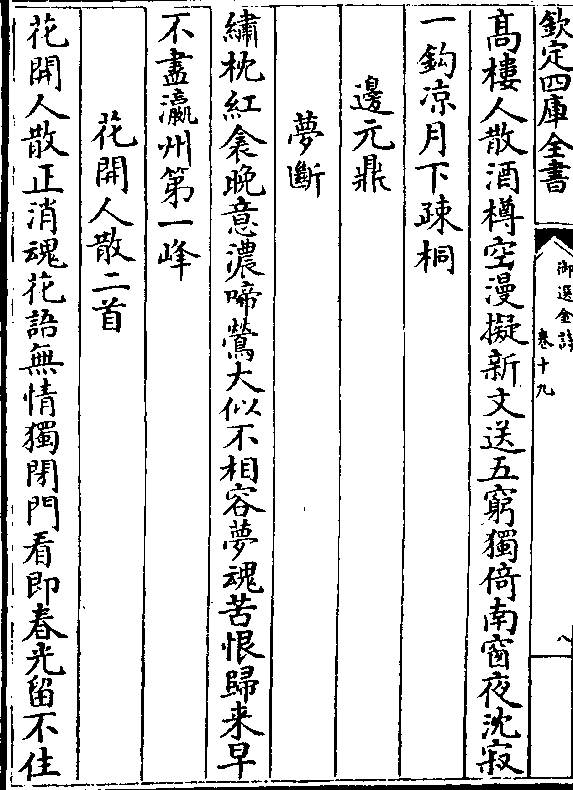 欽定四庫全書
御選金詩 卷十九
八
髙樓人散酒樽空漫擬新文送五窮獨倚南窗夜沈寂
一鈎凉月下疎桐
邊元鼎
夢斷
繡枕紅衾晚意濃啼鶯大似不相容夢魂苦恨歸来早
不盡瀛州第一峰
花開人散二首
花開人散正消魂花語無情獨閉門看即春光留不住